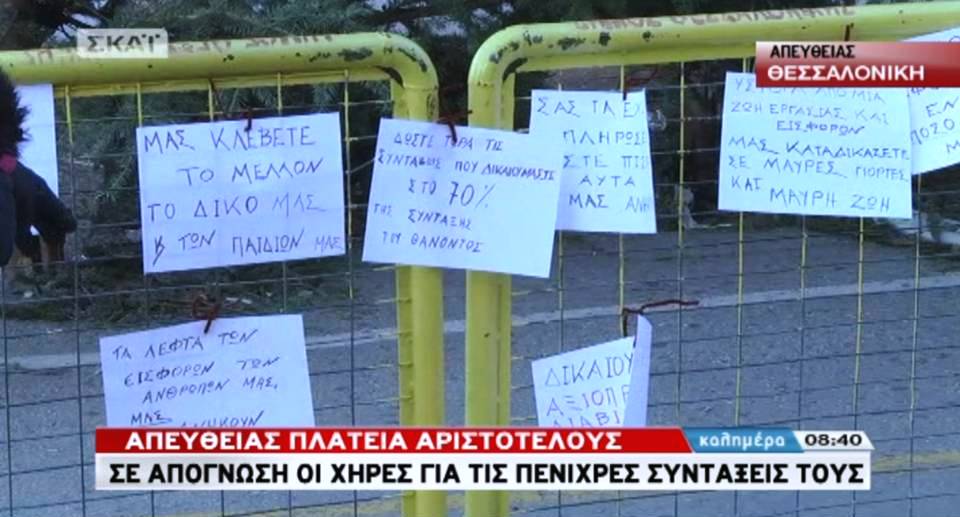 ΣΚΑΪ
ΑΠΕΥΘΕΙΑΣ
ΘΕΣΣΑΛΟΝΙΚΗ
ΜΑΣ ΚΛΕΒΕΤΕ
ΤΟ ΜΕΛΛΟΝ
ΤΟ ΔΙΚΟ ΜΑΣ
Κ ΤΩΝ ΠΑΙΔΙΩΝ ΜΑΣ
ΔΩΣΤΕ ΤΩΡΑ ΤΙΣ
ΣΥΝΤΑΞΕΙΣ ΠΟΥ ΔΙΚΑΙΟΥΜΑΣΤΕ
ΣΤΟ 70%
ΤΗΣ ΣΥΝΤΑΞΗΣ
ΤΟΥ ΘΑΝΟΝΤΟΣ
ΣΑΣ ΤΑ ΕΧ
ΠΛΗΡΩΣ
ΑΥΤΑ
ΜΑΣ ΑΝΗ
ΥΣΤΕΡΑ ΑΠΟ ΜΙΑ
ΖΩΗ ΕΡΓΑΣΙΑΣ ΚΑΙ
ΕΙΣΦΟΡΩΝ
ΜΑΣ ΚΑΤΑΔΙΚΑΖΕΤΕ
ΣΕ ΜΑΥΡΕΣ ΓΙΟΡΤΕΣ
ΚΑΙ ΜΑΥΡΗ ΖΩΗ
ΕΝ
ΠΟΣΟ
ΤΑ ΛΕΦΤΑ ΤΩΝ
ΕΙΣΦΟΡΩΝ ΤΩΝ
ΑΝΘΡΩΠΩΝ ΜΑΣ,
ΜΑΣ ΑΝΗΚΟΥΝ
ΔΙΚΑΙΟΥ
ΑΞΙΟΠΡ
ΔΙΑΒΙ
ΑΠΕΥΘΕΙΑΣ ΠΛΑΤΕΙΑ ΑΡΙΣΤΟΤΕΛΟΥΣ
καλημέρα 08:40
ΣΕ ΑΠΟΓΝΩΣΗ ΟΙ ΧΗΡΕΣ ΓΙΑ ΤΙΣ ΠΕΝΙΧΡΕΣ ΣΥΝΤΑΞΕΙΣ ΤΟΥΣ